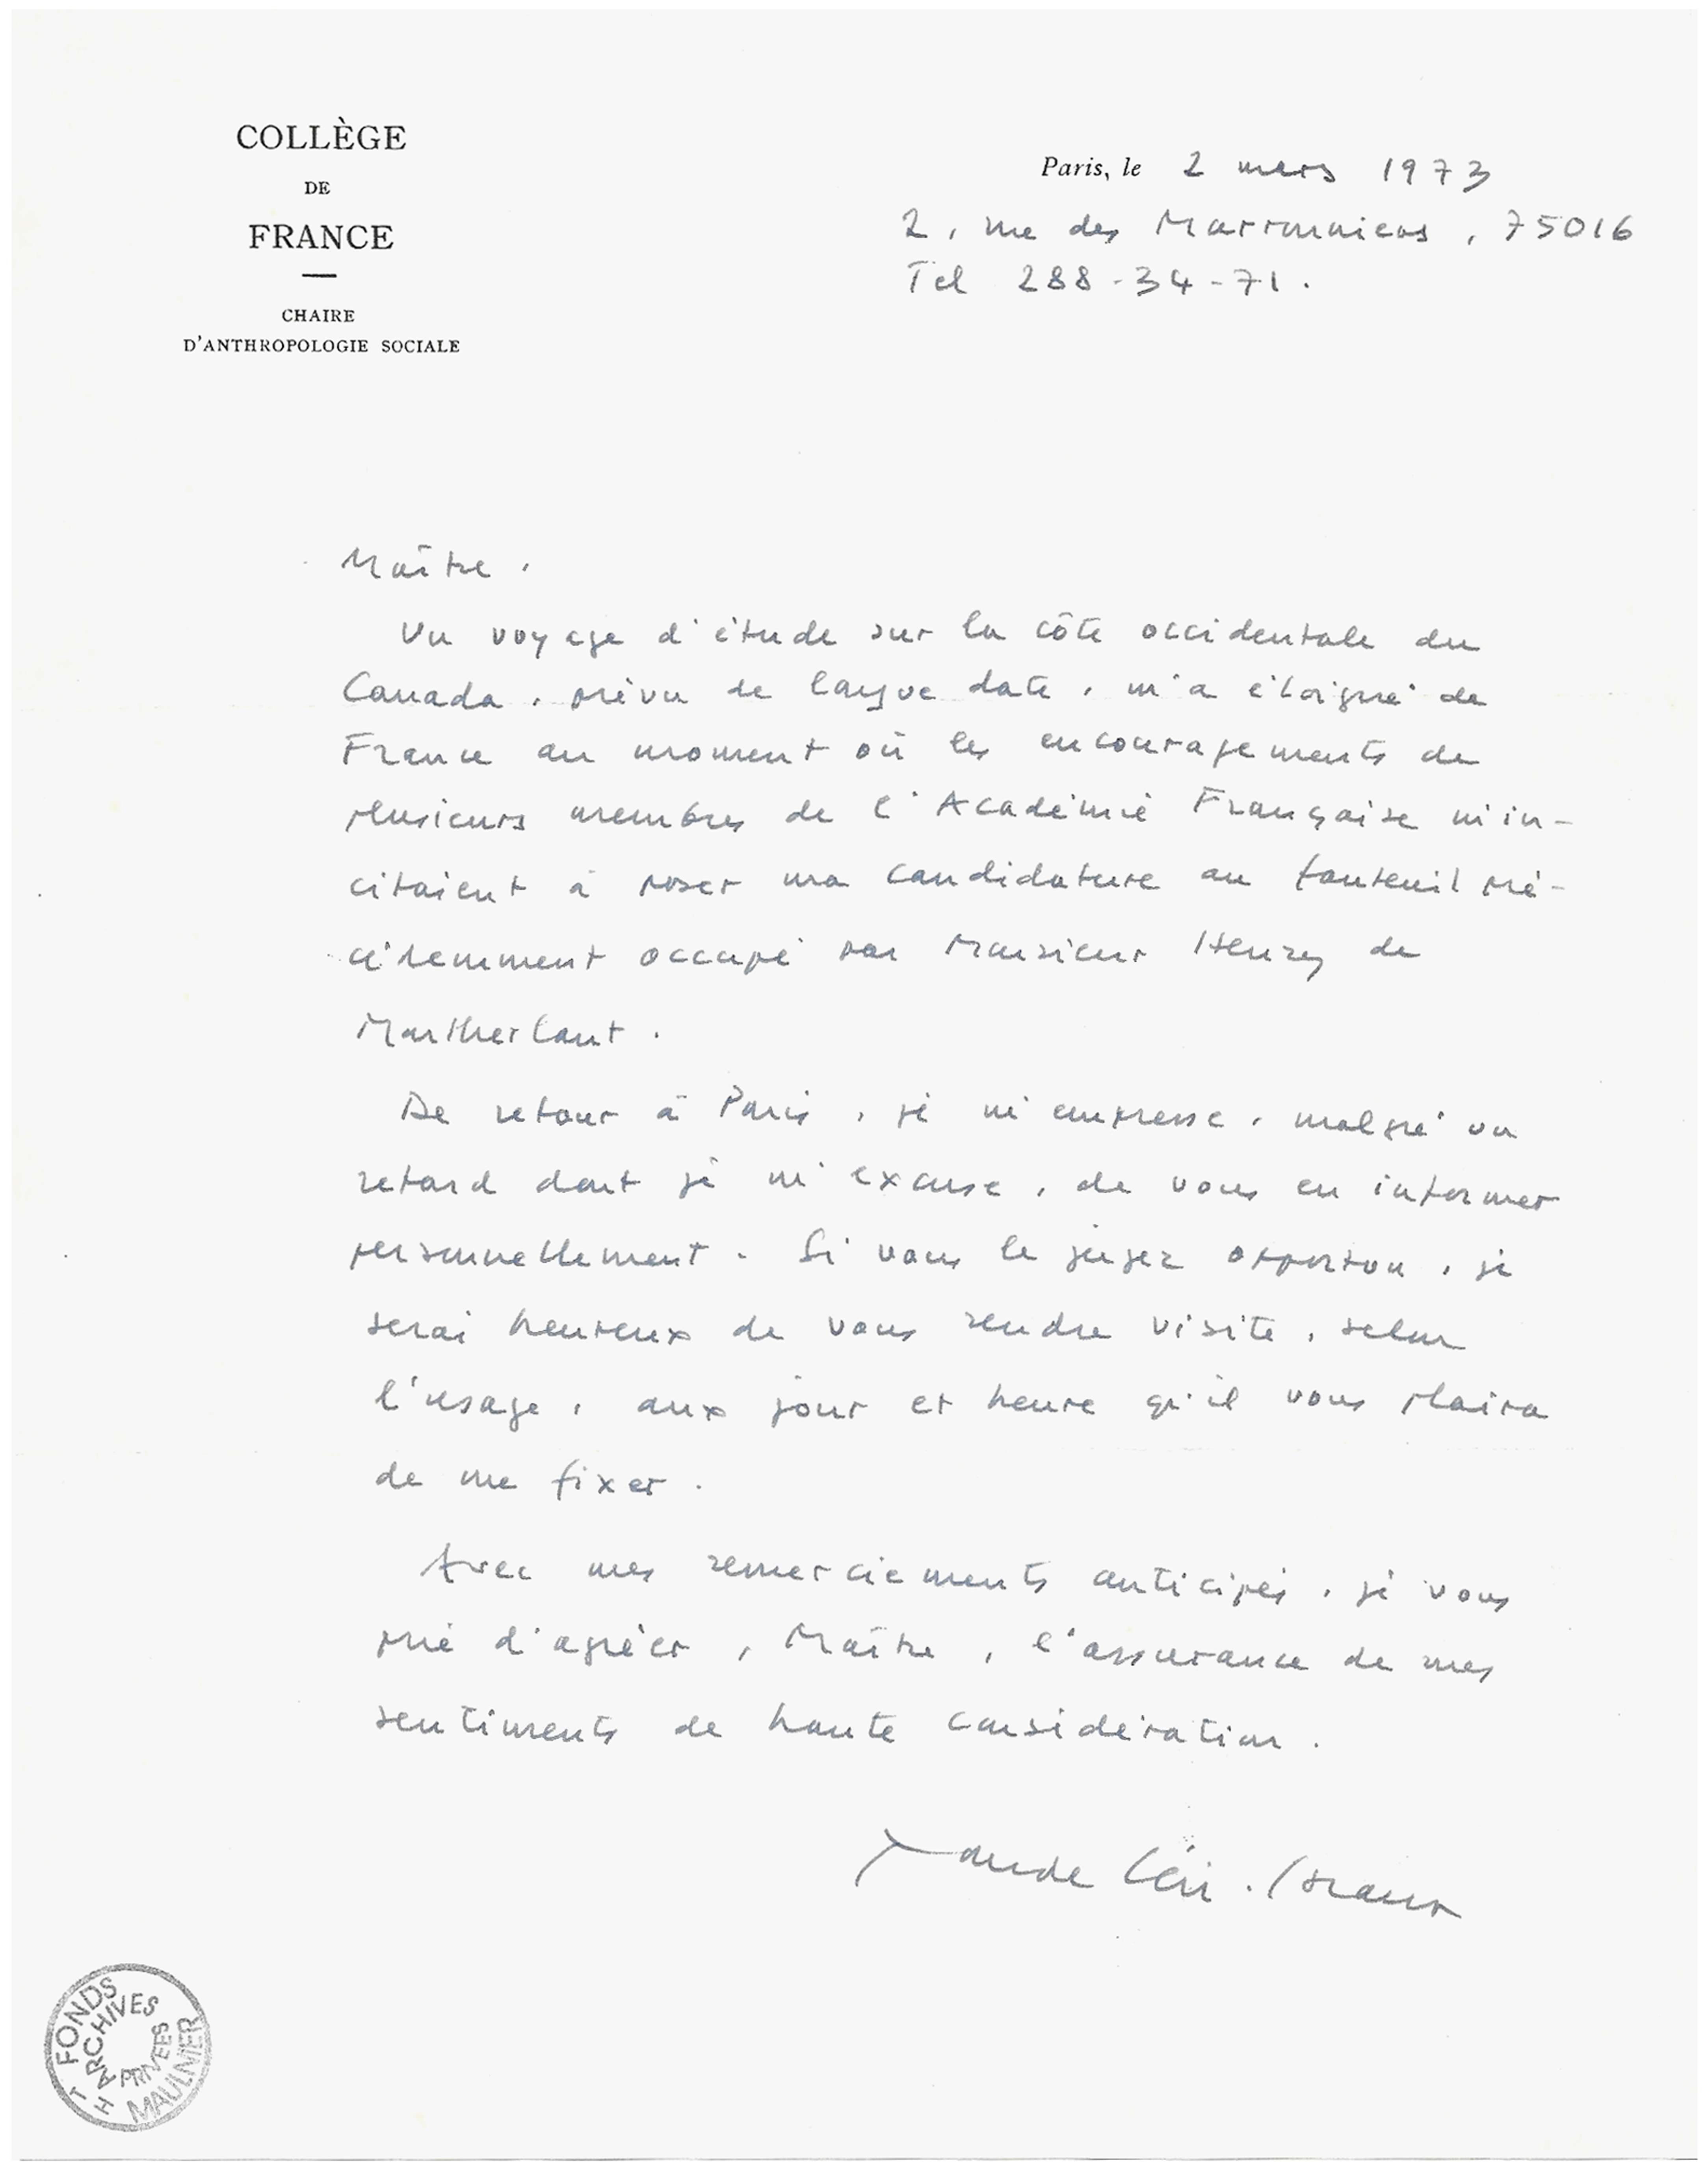 COLLÈGE
DE
FRANCE
CHAIRE
D'ANTHROPOLOGIE SOCIALE
Paris, le 2 mars 1973
2, rue des Marronniers, 75016
Tel 288-34-71.
Maître,
Un voyage d'étude sur la côte occidentale du
Canada, prévu de longue date, m'a éloigné de
France au moment où les encouragements de
plusieurs membres de l'Académie Française m'in-
citaient à poser ma candidature au fauteuil pré-
cédemment occupé par Monsieur Henry de
Montherlant.
De retour à Paris, je m'empresse, malgré un
retard dont je m'excuse, de vous en informer
personnellement. Si vous le jugez opportun, je
serai heureux de vous rendre visite, selon
l'usage, aux jour et heure qu'il vous plaira
de me fixer.
Avec mes remerciements anticipés, je vous
prie d'agréer, Maître, l'assurance de mes
sentiments de haute considération.
Claude Lévi-Strauss
FONDS
ARCHIVES
PRIVEES
TH MAULNIER